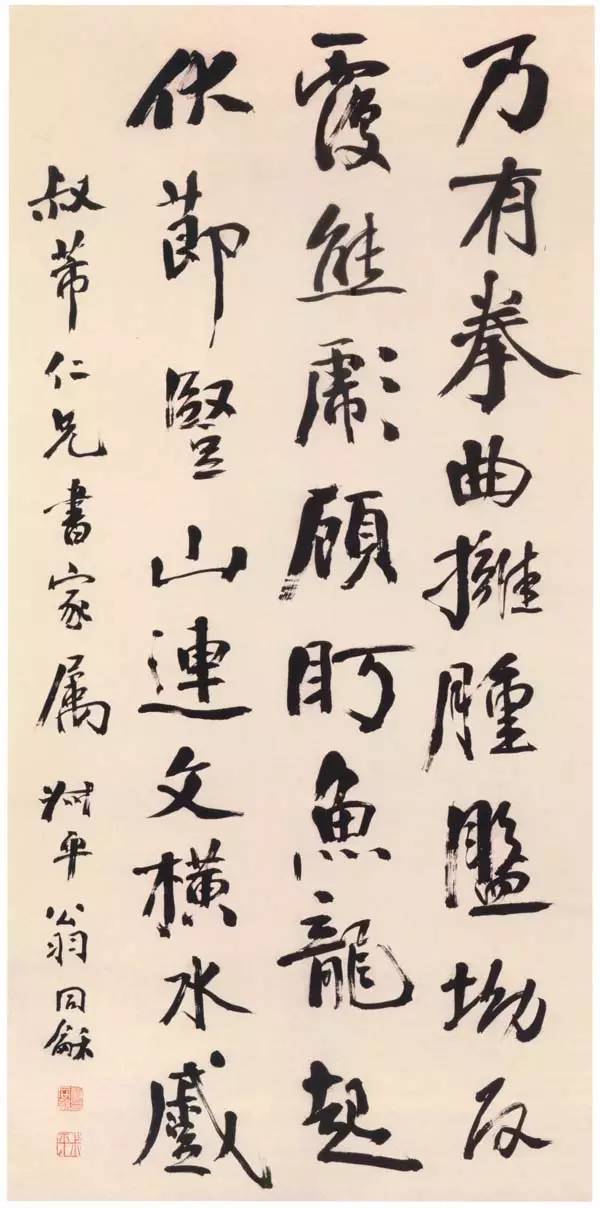 乃有拳曲擁腫盤坳反
覆熊彪顧眄魚龍起
伏節豎山連文橫水蹙
叔芾仁兄書家属 叔平翁同龢